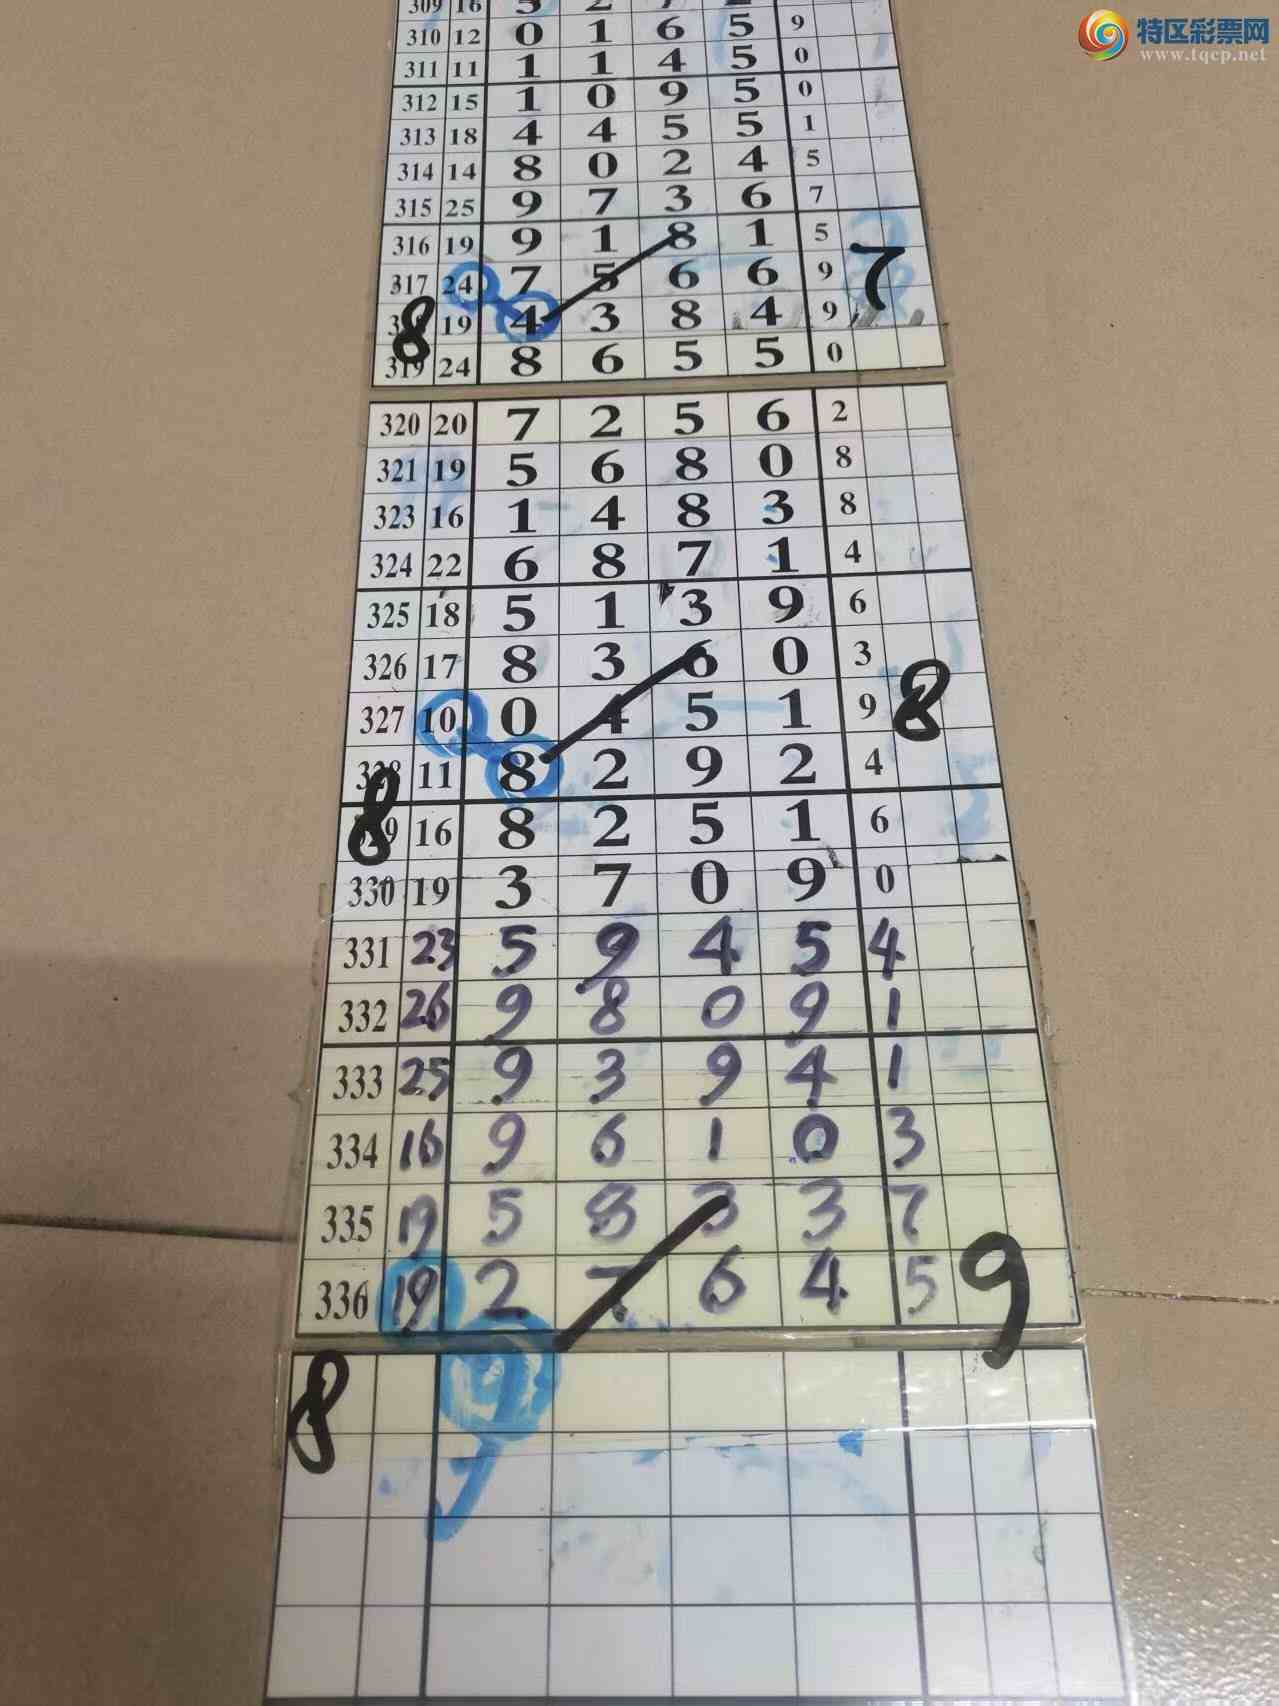 特区彩票网
www.tqcp.net
309 16 5 2
310 12 0 1 6 5 9
311 11 1 1 4 5 0
312 15 1 0 9 5 0
313 18 4 4 5 5 1
314 14 8 0 2 4 5
315 25 9 7 3 6 7
316 19 9 1 8 1 5
317 24 7 5 6 6 9 7
8 19 4 3 8 4 9
319 24 8 6 5 5 0
320 20 7 2 5 6 2
321 19 5 6 8 0 8
323 16 1 4 8 3 8
324 22 6 8 7 1 4
325 18 5 1 3 9 6
326 17 8 3 6 0 3
327 10 0 4 5 1 9 8
328 11 8 2 9 2 4
8 16 8 2 5 1 6
330 19 3 7 0 9 0
331 23 5 9 4 5 4
332 26 9 8 0 9 1
333 25 9 3 9 4 1
334 16 9 6 1 0 3
335 19 5 8 3 3 7
336 19 2 7 6 4 5 9
8